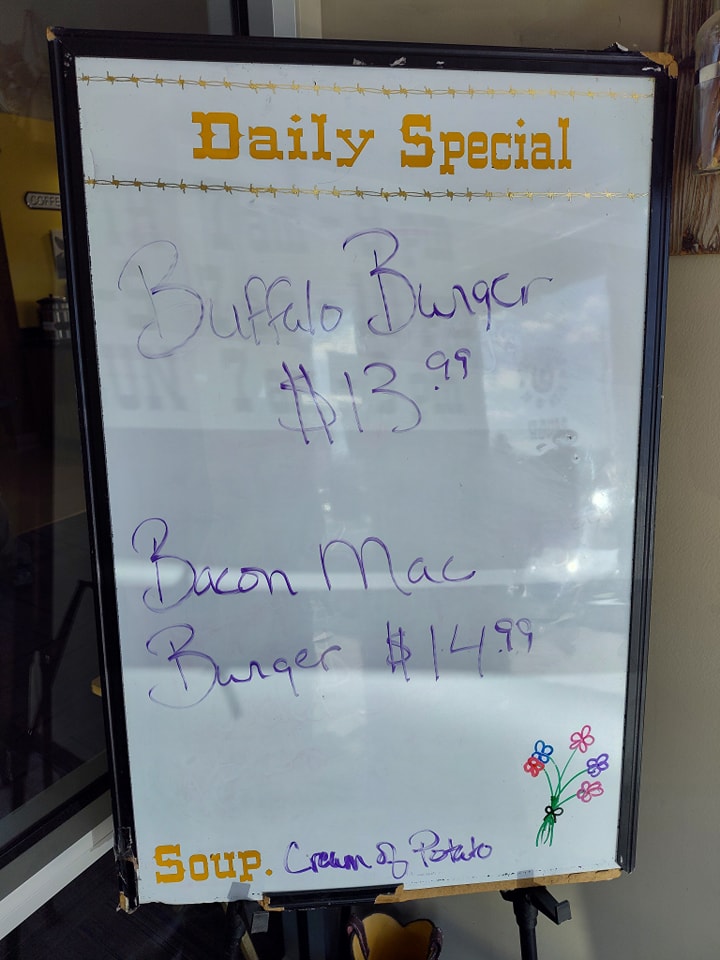 Daily Special
Buffalo Burger
$13.99
Bacon Mac
Burger $14.99
Soup. Cream of Potato
COFFE